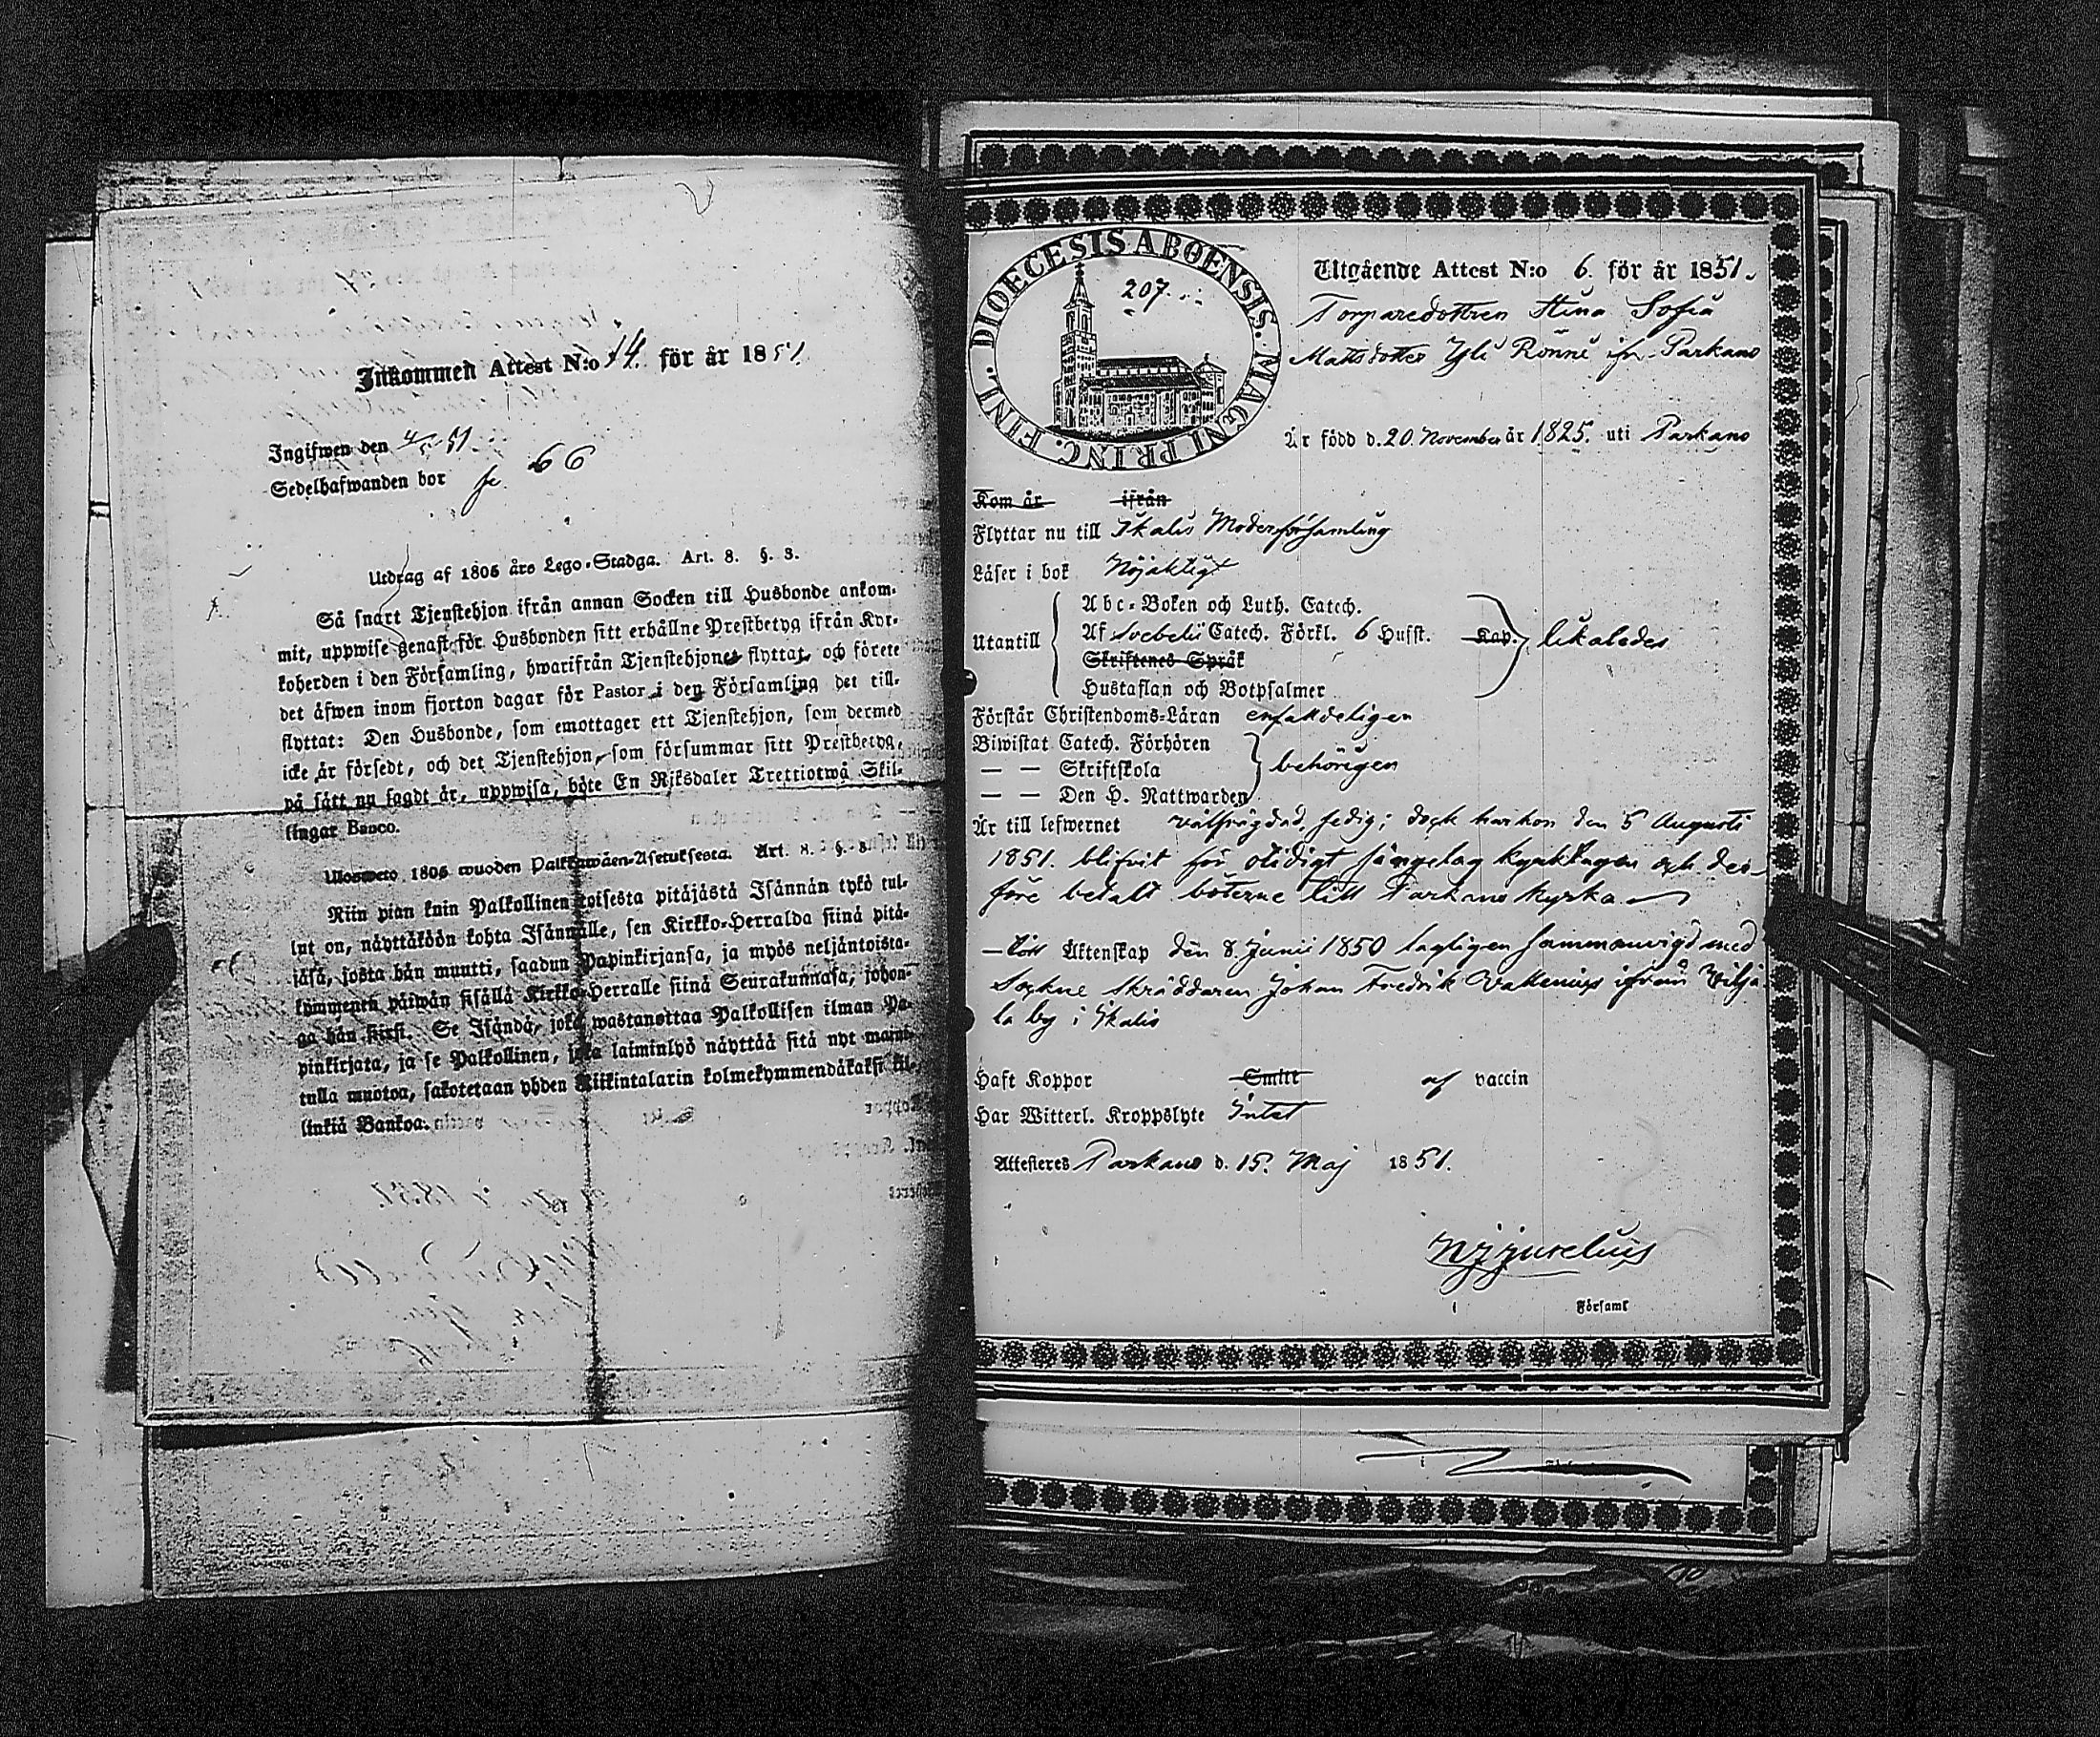 Inkommen Attest N:o 14. för år 1851.
Ingifwen den
Sedelhafwanden bor 66
Utdrag af 1805 års Lego-Stadga. Art. 8. §. 3.
Så snart Tjenstehjon ifrån annan Socken till Husbonde ankom-
mit, uppwise genast för Husbonden sitt erhållne Prestbetyg ifrån Kyr-
koherden i den Församling, hwarifrån Tjenstehjonet flyttat, och förete
det äfwen inom fjorton dagar för Pastor i den Församling det till-
flyttat: Den Husbonde, som emottager ett Tjenstehjon, som dermed
icke är försedt, och det Tjenstehjon, som försummar sitt Prestbetyg,
på sätt nu sagdt är, uppwisa, böte En Riksdaler Trettiotwå Skil-
lingar Banco.
Ulosweto 1805 wuoden Palkkawäen-Asetuksesta. Art. 8. §. 3.
Niin pian kuin Palkollinen toisesta pitäjästä Isännän tykö tul-
lut on, näyttäköön kohta Isännälle, sen Kirkko-Herralda siinä pitä-
jäsä, josta hän muutti, saadun Papinkirjansa, ja myös neljäntoista-
kymmenen päiwän sisällä Kirkko-Herralle siinä Seurakunnasa, johon-
ga hän siirsi. Se Isändä, joka wastanottaa Palkollisen ilman Pa-
pinkirjata, ja se Palkollinen, joka laiminlyö näyttää sitä nyt mainit-
tulla muotoa, sakotetaan yhden Riikintalarin kolmekymmendäkaksi kil-
linkiä Bankoa.
DIOECESIS ABOENSIS. MAGNI PRINC. FINL.
207.
Utgående Attest N:o 6. för år 1851.
Torparedottren Stina Sofia
Mattsdotter Yli Rönni ifr. Parkano
Är född d. 20. November år 1825. uti Parkano
Kom år ifrån
Flyttar nu till Ikalis Moderförsamling
Läser i bok Nöjaktigt
Utantill
Abc-Boken och Luth. Catech.
Af Svebelii Catech. Förkl. 6 Hufst. Kap. likaledes
Skriftenes Språk
Hustaflan och Botpsalmer
Förstår Christendoms-Läran enfaldeligen
Biwistat Catech. Förhören
— — Skriftskola behörigen
— — Den H. Nattwarden
Är till lefwernet välfrägdad, ledig; dock har hon den 5 Augusti
1851. blifvit för otidigt sängelag och der-
före betalt böterne till Parkano kyrka.
— till Äktenskap den 8. Junii 1850 lagligen sammanvigd med
Sockne Skräddaren Johan Fredrik Vallenius ifrån Vilja-
la by i Ikalis
Haft Koppor Smitt af vaccin
Har Witterl. Kroppslyte Intet
Attesteras Parkano d. 15. Maj 1851.
Församl